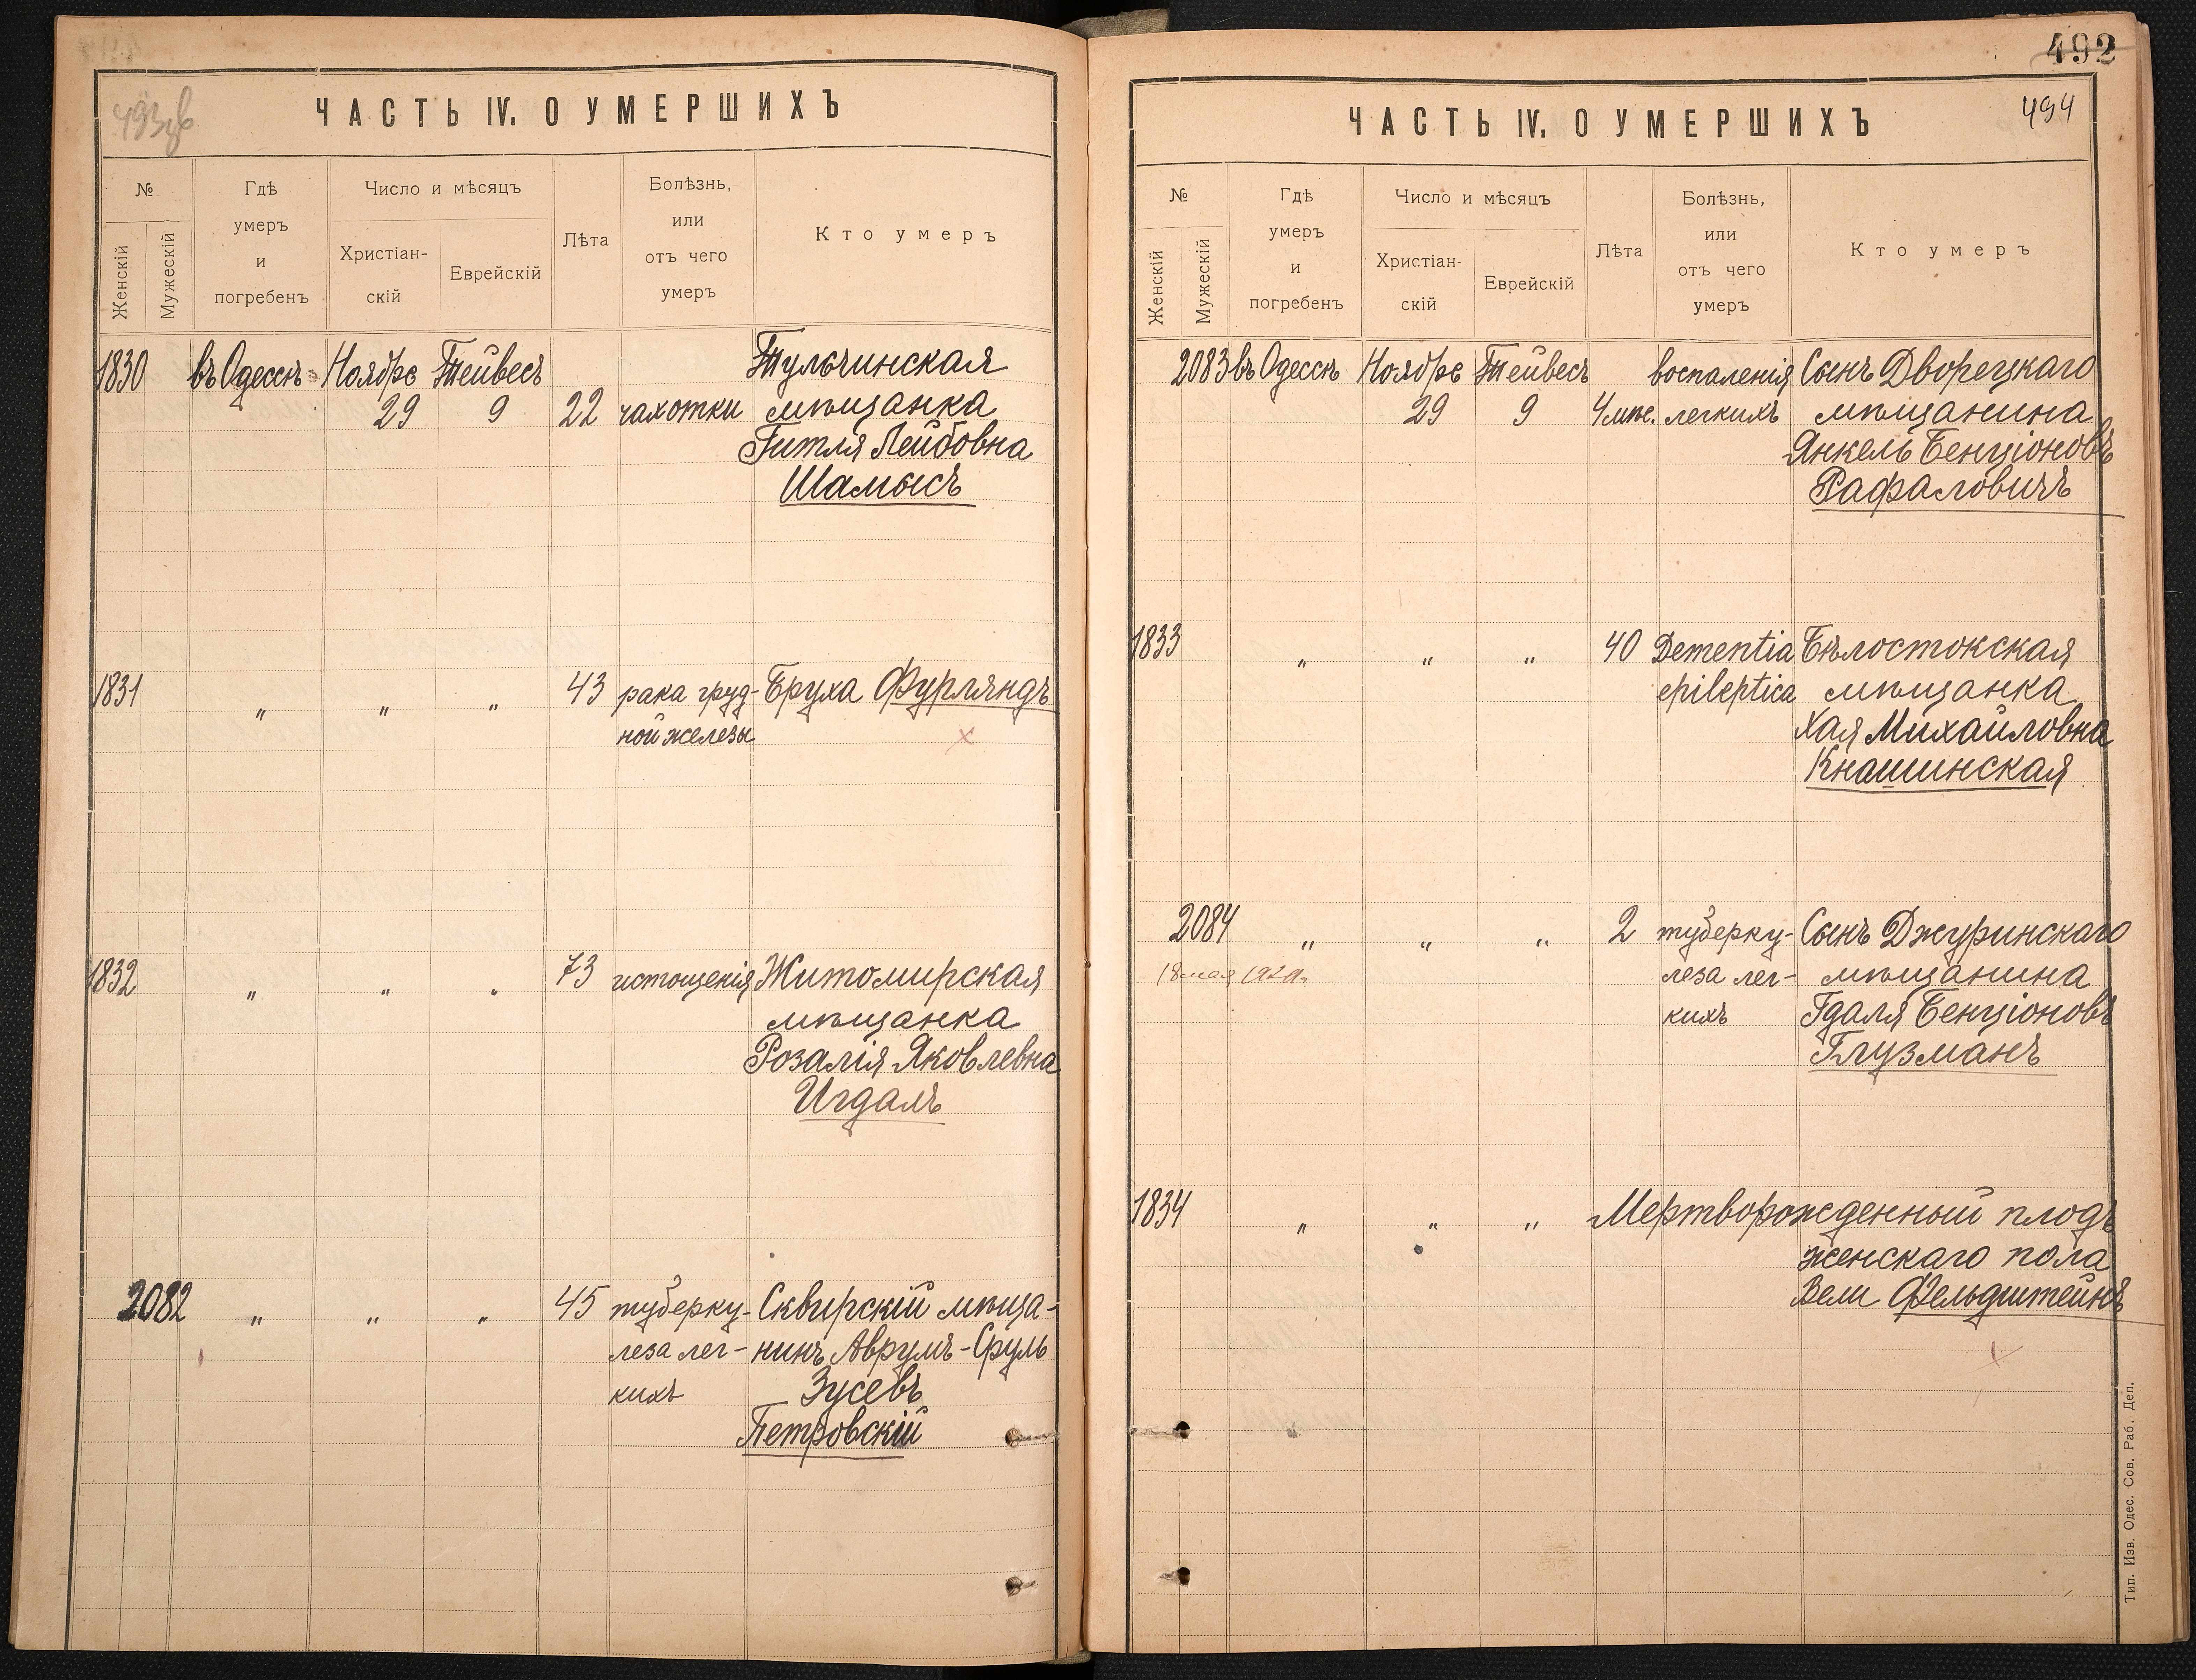 493 об
ЧАСТЬ IV. О УМЕРШИХЪ
№
Женскій
Мужескій
Гдѣ
умеръ
и
погребенъ
Число и мѣсяцъ
Христіан-
скій
Еврейскій
Лѣта
Болѣзнь,
или
отъ чего
умеръ
Кто умеръ
1830 въ Одессѣ Ноября Тейвесъ Тульчинская
29 9 22 чахотки мѣщанка
Гитля Лейбовна
Шамысъ
1831 " " " 43 рака груд- Бруха Фурляндъ
ной железы
1832 " " " 73 истощенія Житомирская
мѣщанка
Розалія Яковлевна
Игдалъ
2082 " " " 45 туберку- Сквирскій мѣща-
леза лег- нинъ Аврумъ-Сруль
кихъ Зусевъ
Петровскій
492
494
ЧАСТЬ IV. О УМЕРШИХЪ
№
Женскій
Мужескій
Гдѣ
умеръ
и
погребенъ
Число и мѣсяцъ
Христіан-
скій
Еврейскій
Лѣта
Болѣзнь,
или
отъ чего
умеръ
Кто умеръ
2083 въ Одессѣ Ноября Тейвесъ воспаленія Сынъ Дворецкаго
29 9 4 мѣс. легкихъ мѣщанина
Янкель Бенціоновъ
Рафаловичъ
1833 " " " 40 Dementia Бѣлостокская
epileptica мѣщанка
Хая Михайловна
Кнашинская
2084 " " " 2 туберку- Сынъ Джуринскаго
18 мая леза лег- мѣщанина
кихъ Гдаля Бенціоновъ
Глузманъ
1834 " " " Мертворожденный плодъ
женскаго пола
Вели Фельдштейнъ
Тип. Изв. Одес. Сов. Раб. Деп.